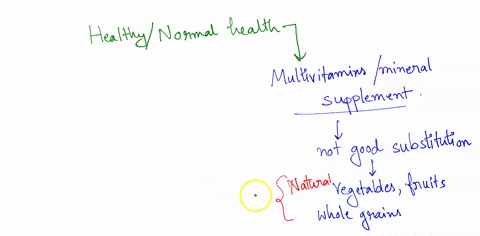 Healthy/Normal health
Multivitamins/mineral
supplement.
not good substitution
Natural vegetables, fruits
whole grains